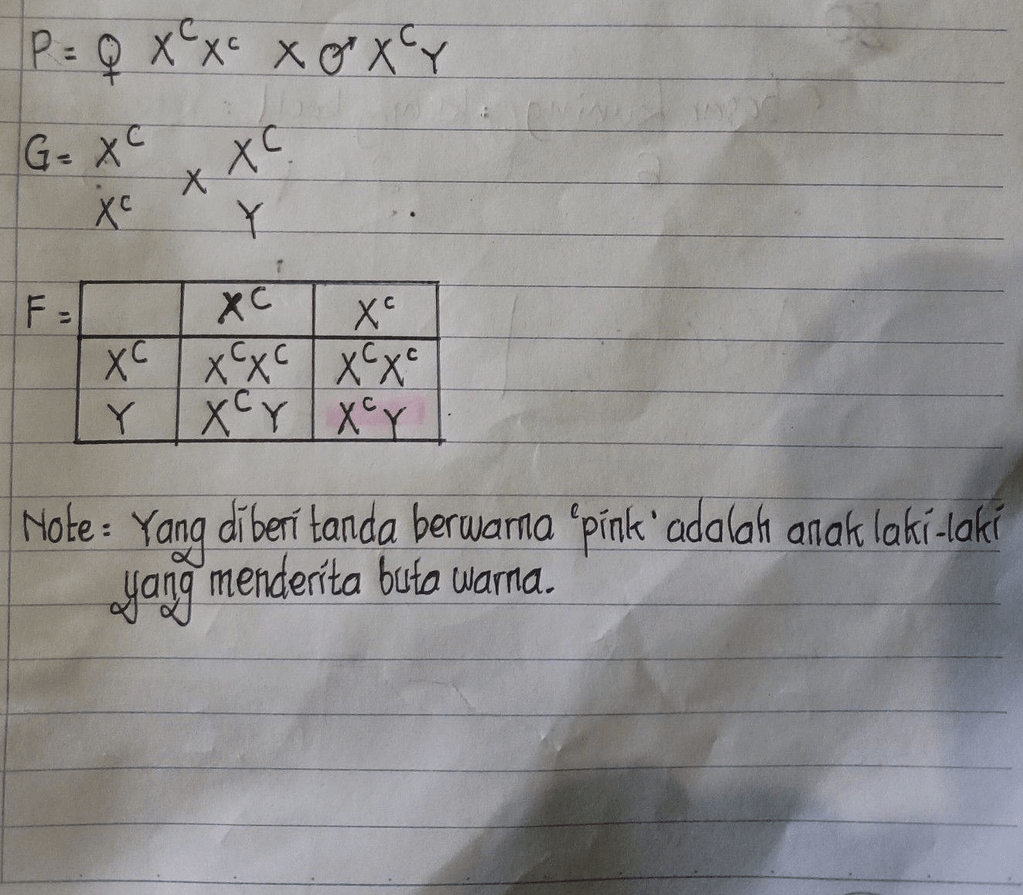 P = ♀ XᶜXᶜ x ♂ XᶜY
G = Xᶜ x Xᶜ
Xᶜ Y
F =
Xᶜ Xᶜ
Xᶜ XᶜXᶜ XᶜXᶜ
Y XᶜY XᶜY
Note: Yang diberi tanda berwarna 'pink' adalah anak laki-laki
yang menderita buta warna.